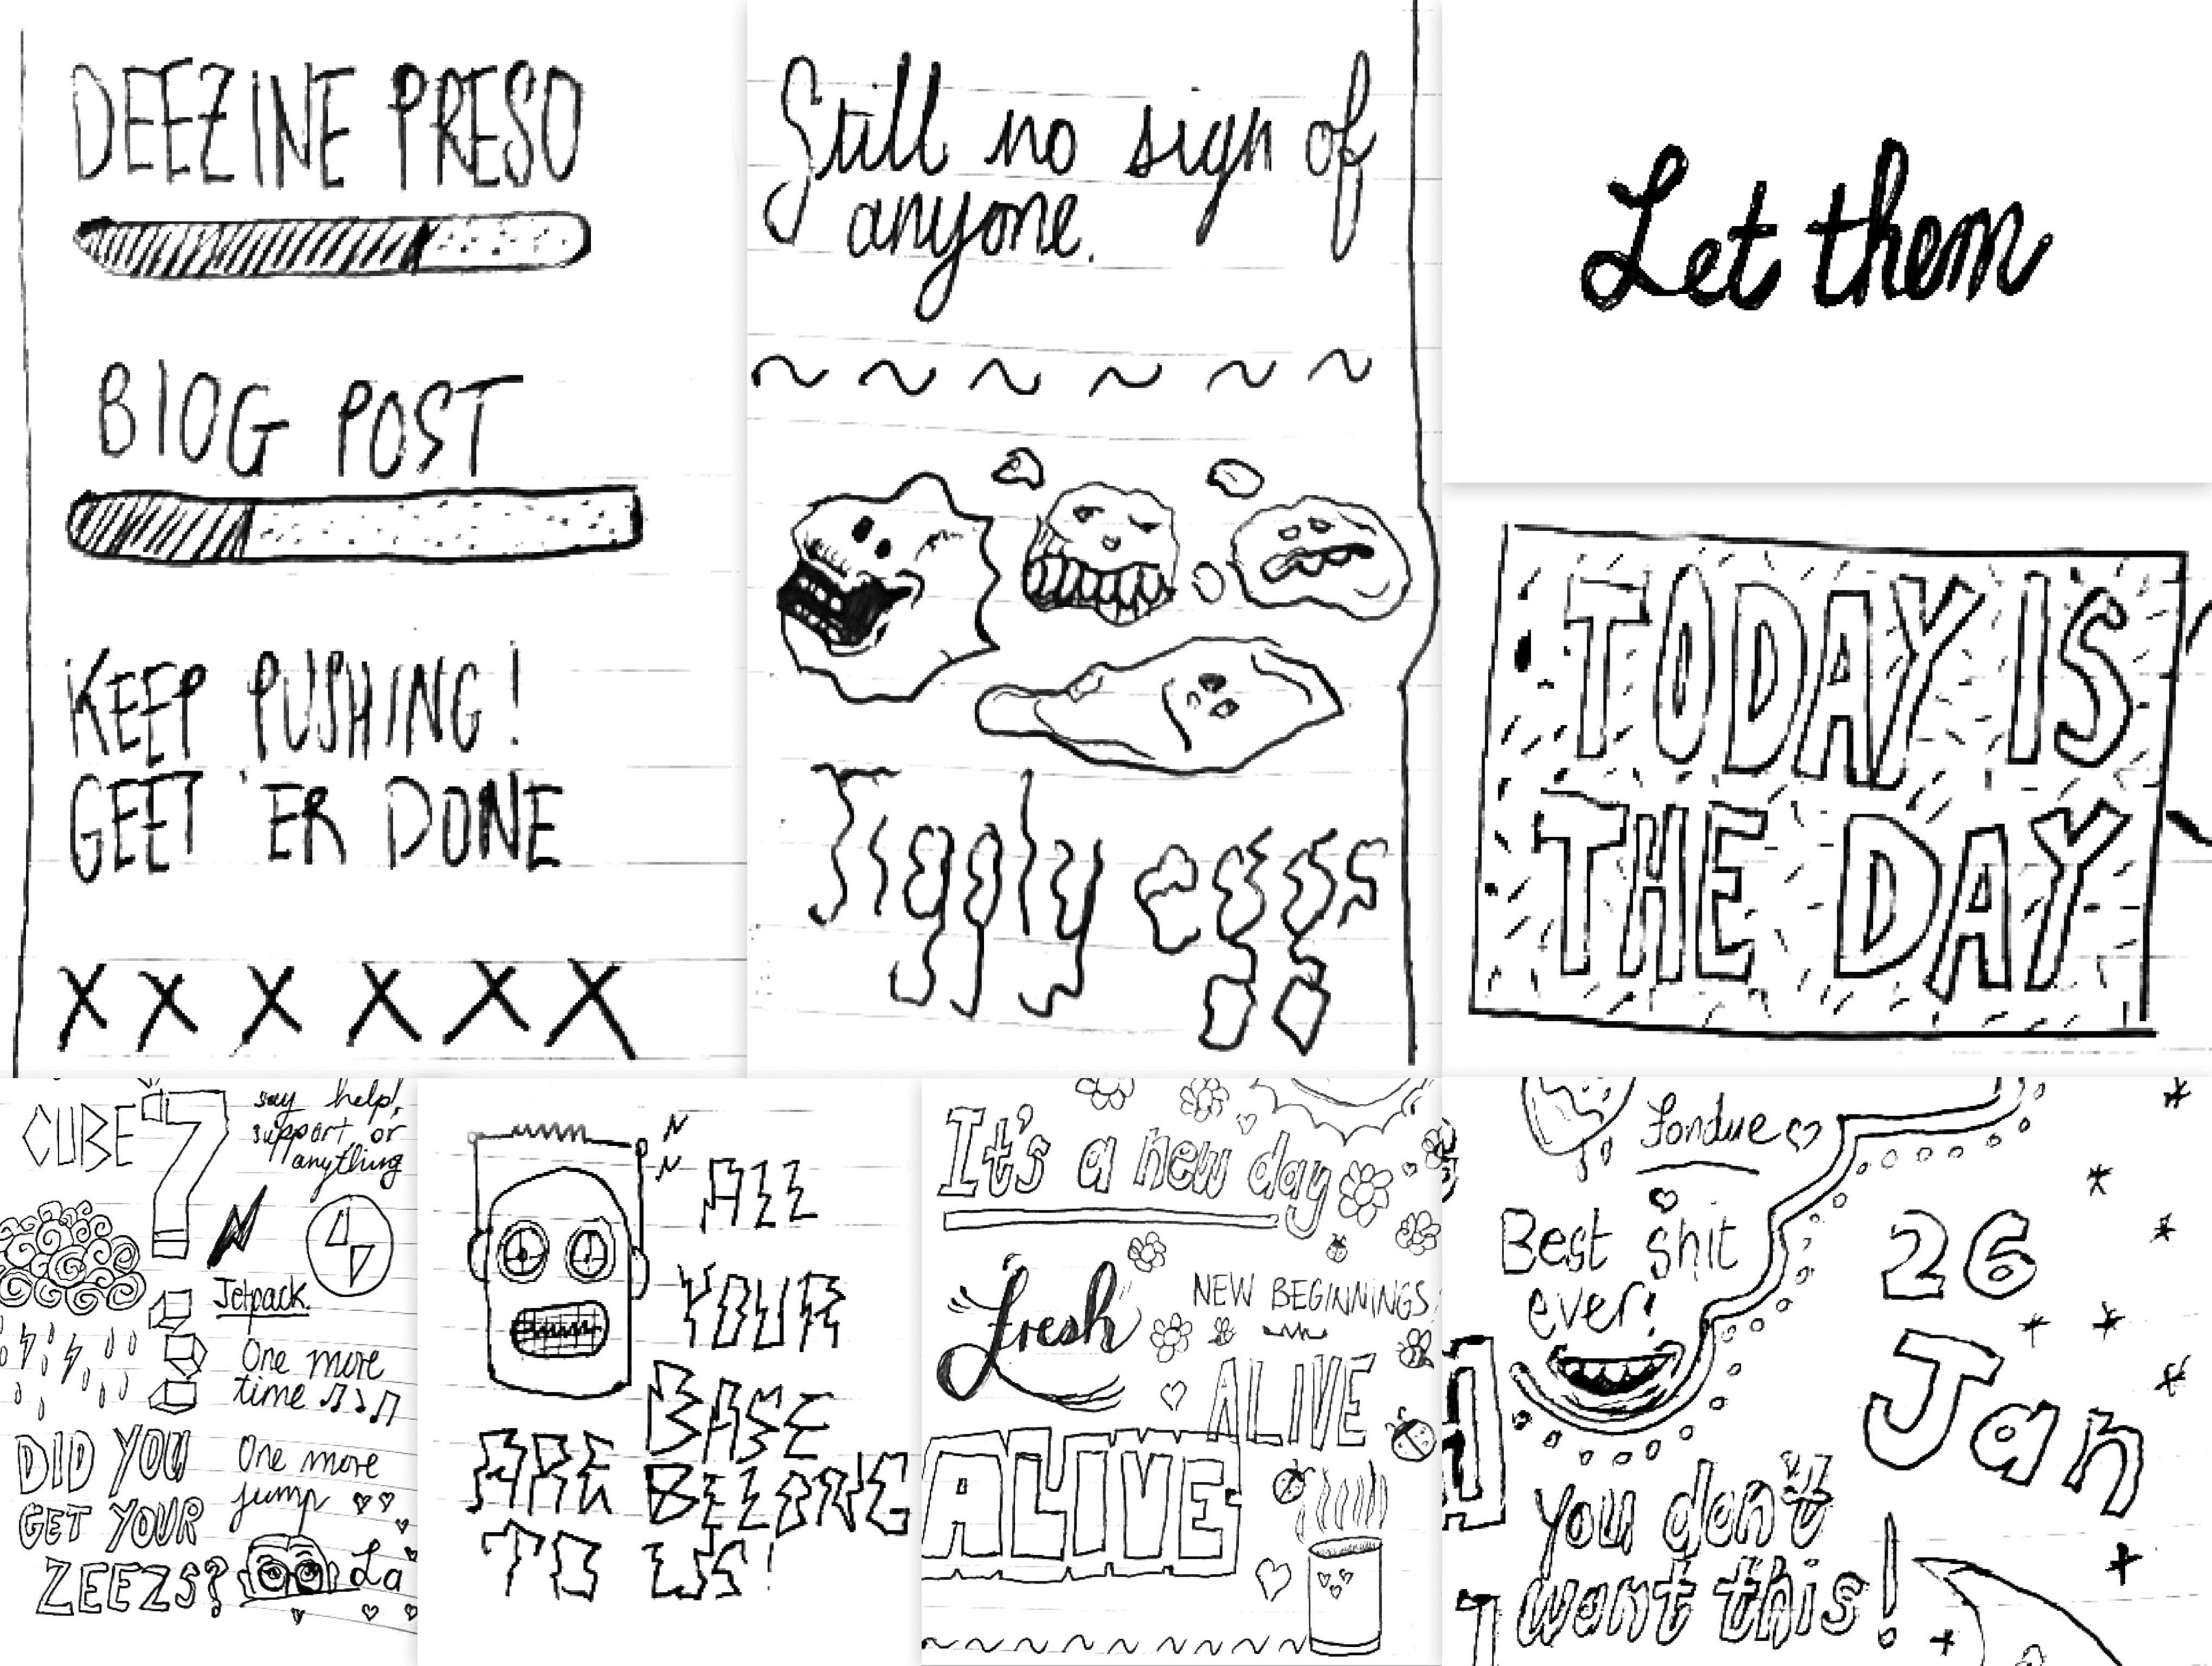 DEEZINE PRESO
BLOG POST
KEEP PUSHING!
GEET 'ER DONE
X X X X X X
Still no sign of
anyone.
Jiggly eggs
Let them
TODAY IS
THE DAY
CUBE 7
say help,
support or
anything
Jetpack.
One more
time
DID YOU
GET YOUR
ZEEZS?
One more
jump
La
ALL
YOUR
BASE
ARE BELONG
TO US!
It's a new day
Fresh
NEW BEGINNINGS
ALIVE
ALIVE
fondue
Best shit
ever!
26
Jan
You don't
want this!